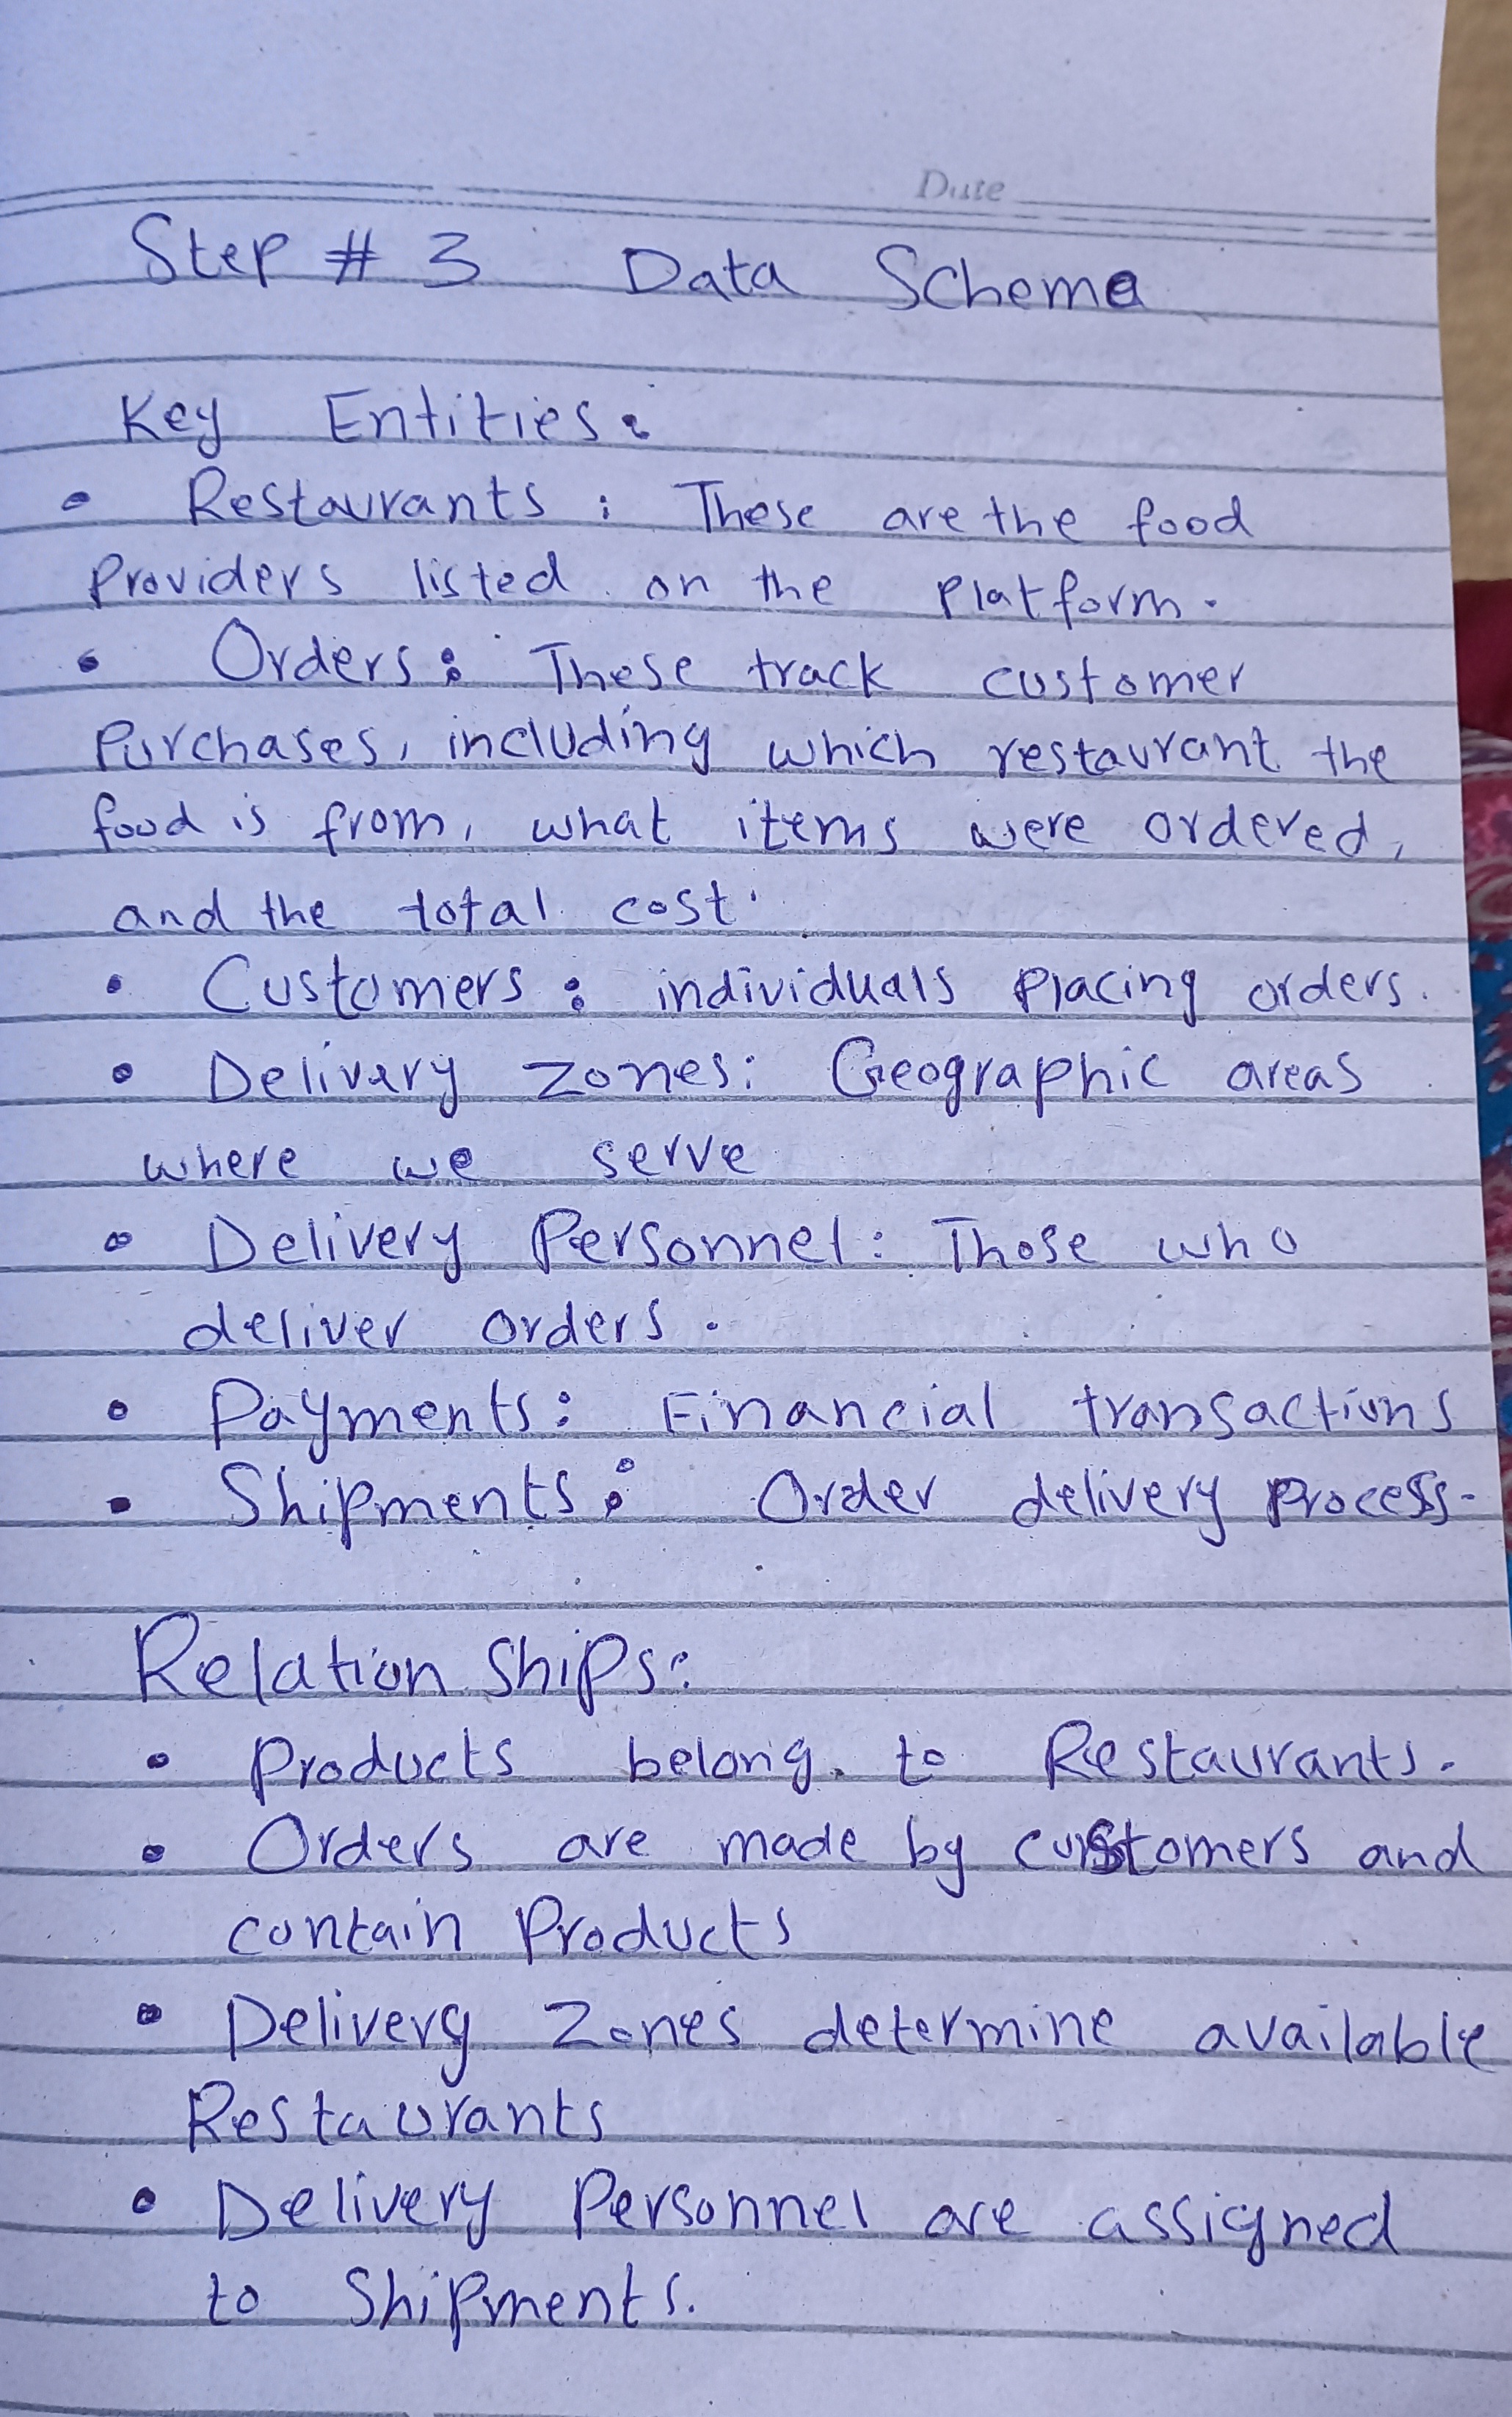 Date
Step # 3 Data Schema
Key Entities:
• Restaurants : These are the food
Providers listed on the Platform.
• Orders: These track customer
Purchases, including which restaurant the
food is from, what items were ordered,
and the total cost.
• Customers : individuals Placing orders.
• Delivery Zones: Geographic areas
where we serve
• Delivery Personnel: Those who
deliver orders.
• Payments: Financial transactions
• Shipments: Order delivery Process.
Relation Ships:
• Products belong to Restaurants.
• Orders are made by customers and
contain Products
• Delivery Zones determine available
Restaurants
• Delivery Personnel are assigned
to Shipments.